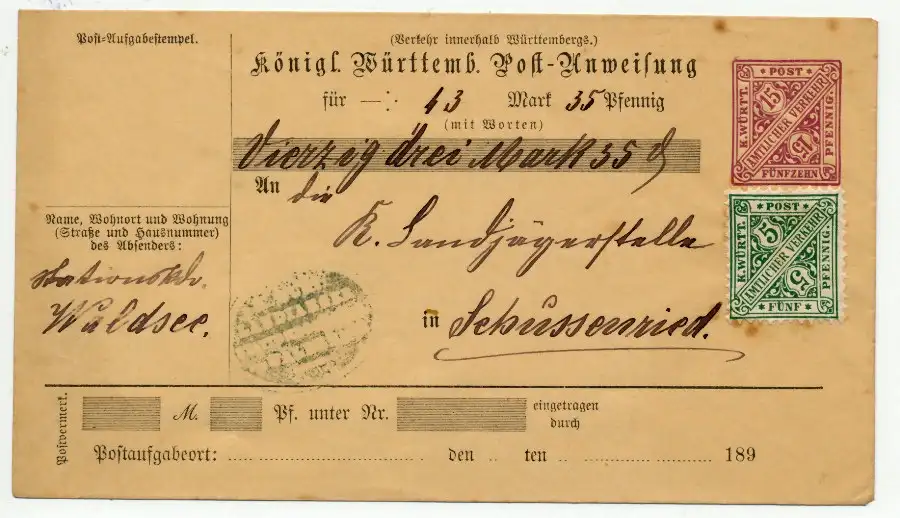 Post-Aufgabestempel.
(Verkehr innerhalb Württembergs.)
Königl. Württemb. Post-Anweisung
für 43 Mark 35 Pfennig
(mit Worten)
Vierzig drei Mark 35 ₰
An die
K. Landjägerstelle
in Schussenried.
Name, Wohnort und Wohnung
(Straße und Hausnummer)
des Absenders:
Waldsee.
POST
K. WÜRTT.
15
AMTLICHER VERKEHR
15
PFENNIG
FÜNFZEHN
POST
K. WÜRTT.
5
AMTLICHER VERKEHR
5
PFENNIG
FÜNF
Postvermerk.
M. Pf. unter Nr. eingetragen
durch
Postaufgabeort: den ten 189